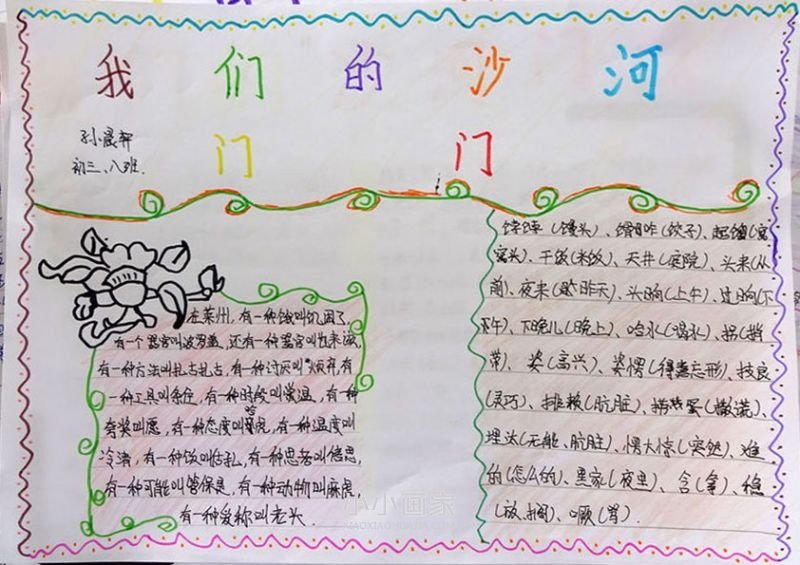 我们的沙河
门 门
孙晨轩
初三、八班.
在莱州,有一种饿叫饥困了,
有一个器官叫波罗盖,还有一种器官叫
有一种方法叫扎古扎古,有一种讨厌叫烦弃,有
一种工具叫条住,有一种时段叫黨温,有一种
夸奖叫愿,有一种态度叫 有一种温度叫
冷清,有一种饭叫估扎,有一种思考叫信思,
有一种可能叫管保是,有一种动物叫麻虎,
有一种爱称叫老头.
饽饽(馒头)、 (饺子)、起馏(窝
窝头)、干饭(米饭)、天井(庭院)、头来(从
前)、夜来(昨天)、头晌(上午)、过晌(下
下午)、下晚儿(晚上)、哈水(喝水)、拐(捎
带)、姿(高兴)、姿愣(得意忘形)、技良
(灵巧)、排赖(肮脏)、 蛋(撒谎)、
埋汰(无能、肮脏)、愣大惊(突然)、难
的(怎么的)、黑家(夜里)、含(拿)、稳
(放、搁)、噘(骂).
小小画家
XIAOXIAOHUAJIA.COM